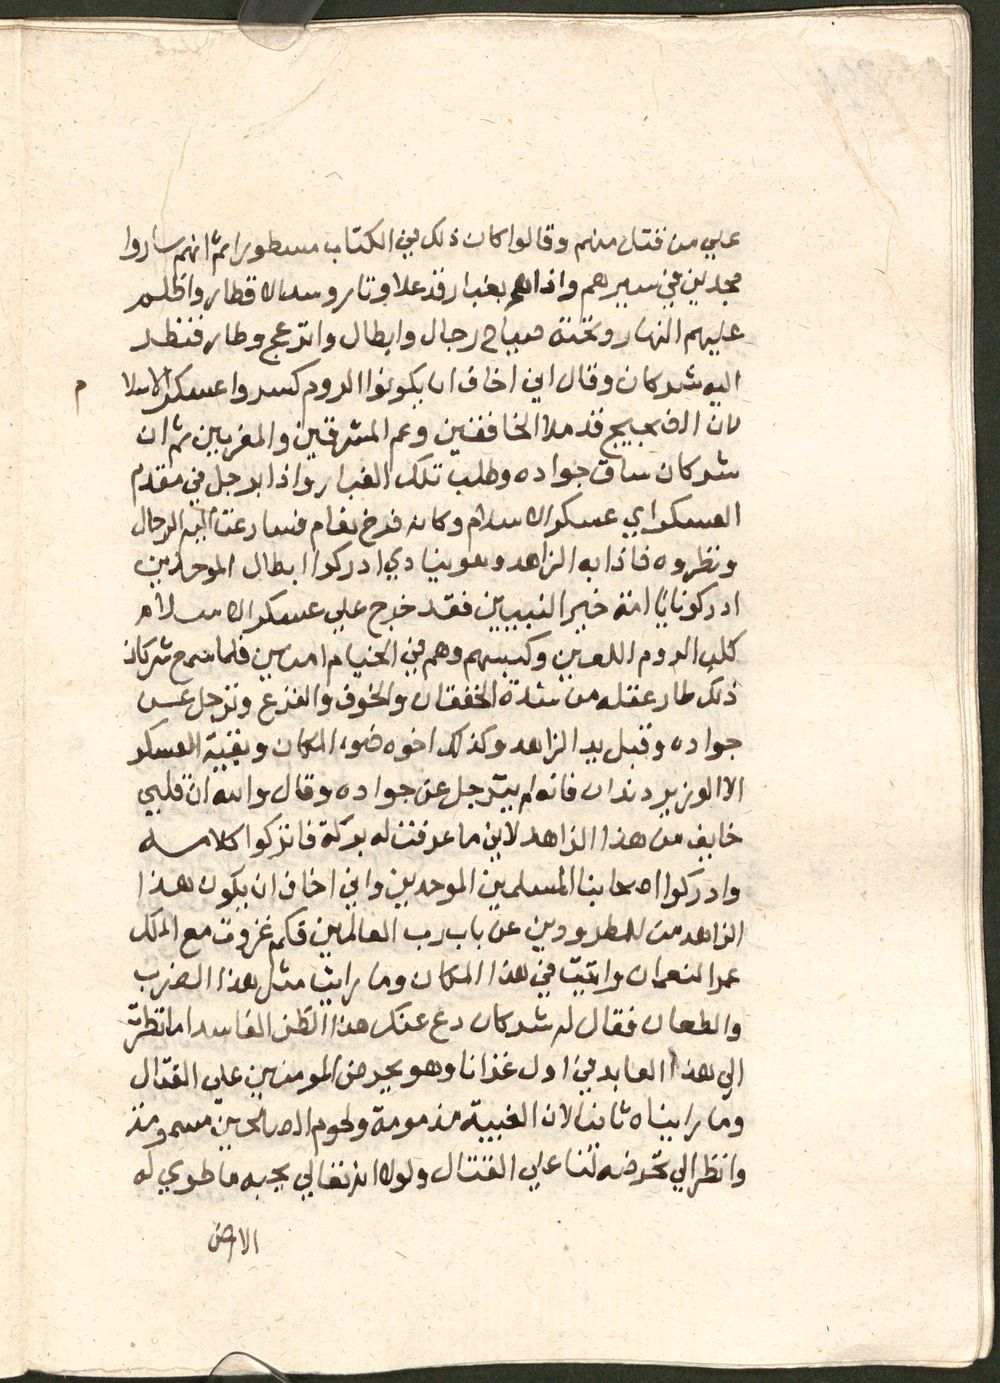 علي من قتل منهم وقالوا كان ذلك في الكتاب مسطورا ثم انهم ساروا
مجدين في سيرهم واذاهم بغبار قد علا وثار وسد الاقطار واظلم
عليهم النهار وتحته صياح رجال وابطال وانزعج وطار فنظر
اليه شركان وقال اني اخاف ان يكونوا الروم كسروا عسكر الاسلام
لان الف عجيج قد ملا الخافقين وعم المشرقين والمغربين ثم ان
شركان ساق جواده وطلب تلك الغبار واذا برجل في مقدم
العسكر اي عسكر الاسلام وكانه فرخ نعام فسارعت اليه الرجال
ونظروه فاذا به الزاهد وهو ينادي ادركوا ابطال الموحدين
ادركونا يا امة خير النبيين فقد خرج علي عسكر الاسلام
كلب الروم اللعين وكبسهم وهم في الخيام امنين فلما سمع شركان
ذلك طار عقله من شدة الخفقان والخوف والفزع ونزجل عن
جواده وقبل يد الزاهد وكذلك اخوه ضوء المكان وبقية العسكر
الا الوزير دندان فانه لم يترجل عن جواده وقال والله ان قلبي
خايف من هذا الزاهد لاني ما عرفت له بركة فاتركوا كلامه
وادركوا اصحابنا المسلمين الموحدين واني اخاف ان يكون هذا
الزاهد من المطرودين عن باب رب العالمين فكم غزوت مع الملك
عمر النعمان واتيت في هذا المكان وما رايت مثل هذا الضرب
والطعان فقال له شركان دع عنك هذا الظن الفاسد اما نظرت
الي هذا العابد في اول غزانا وهو يحرض المومنين علي القتال
وما رايناه ثانيا لان الغيبة مذمومة ولحوم الصالحين مسمومة
وانظر الي تحرضه لنا علي القتال ولولا ان تعالي يحبه ما طوي له
الارض